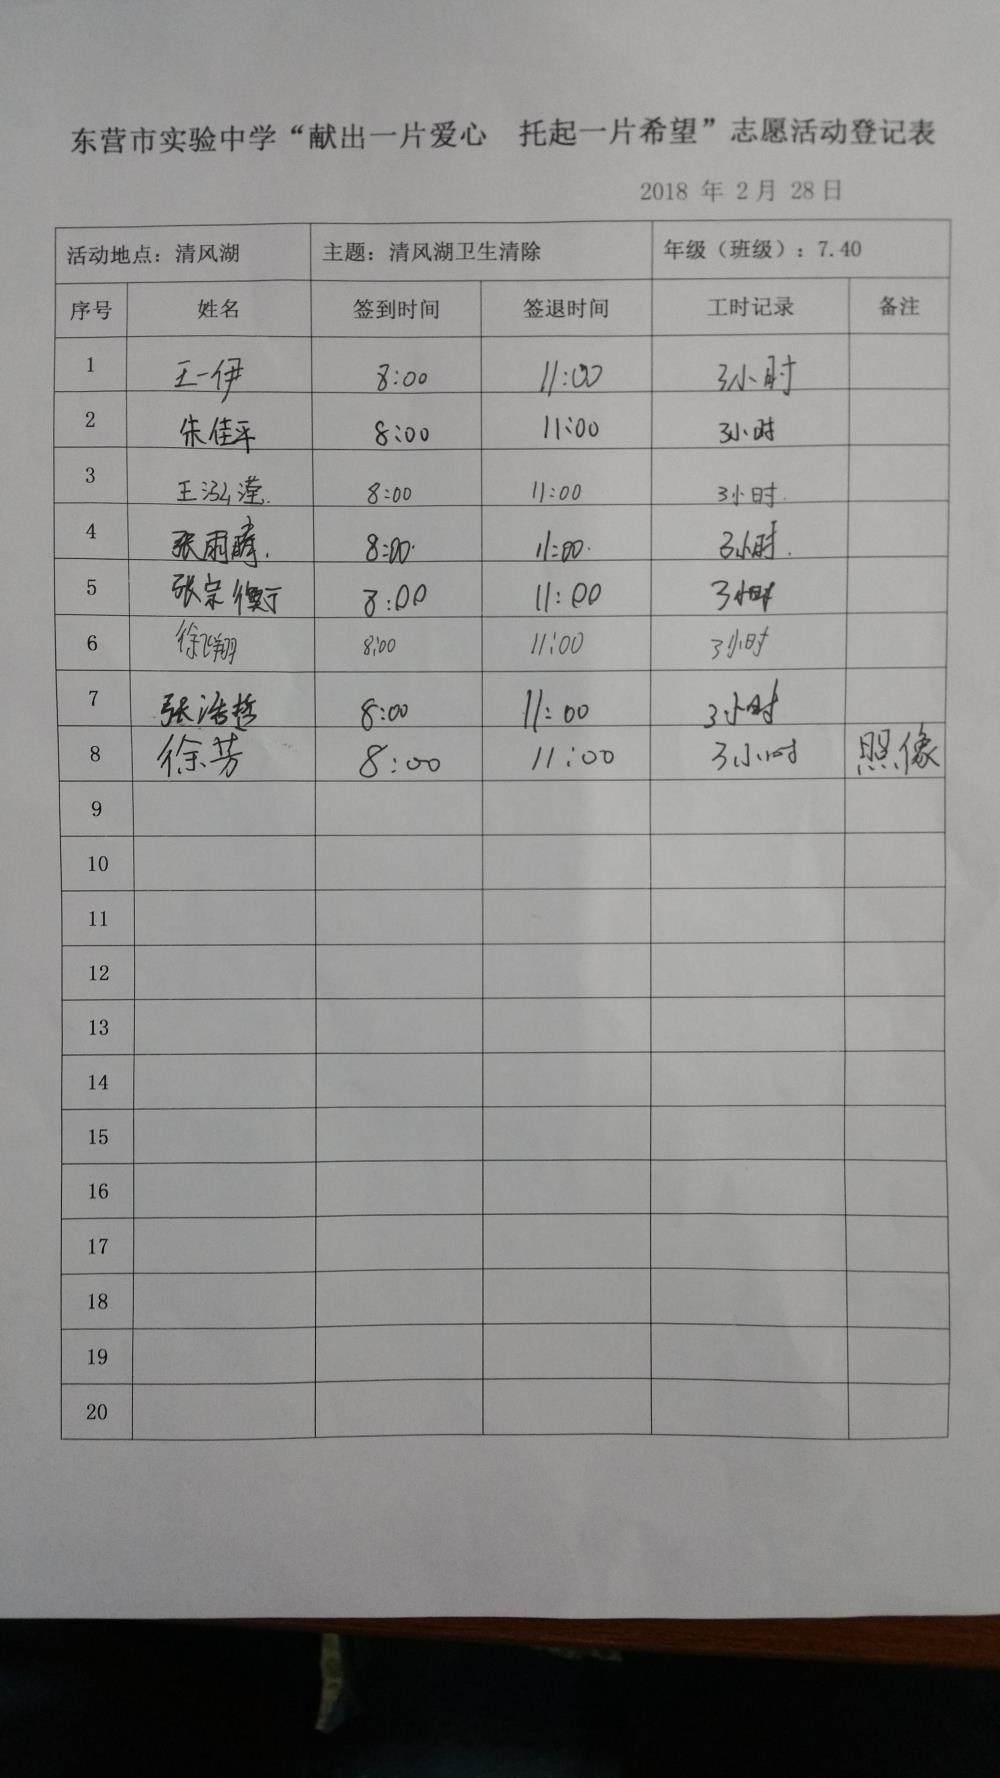 东营市实验中学“献出一片爱心 托起一片希望”志愿活动登记表
2018 年 2月 28日
活动地点：清风湖 主题：清风湖卫生清除 年级（班级）：7.40
序号 姓名 签到时间 签退时间 工时记录 备注
1 王一伊 8:00 11:00 3小时
2 朱佳平 8:00 11:00 3小时
3 王泓滢. 8:00 11:00 3小时.
4 张雨 8:00. 11:00. 3小时.
5 张宗衡 8:00 11:00 3小时
6 徐飞翔 8:00 11:00 3小时
7 张浩哲 8:00 11:00 3小时
8 徐芳 8:00 11:00 3小时 照像
9
10
11
12
13
14
15
16
17
18
19
20